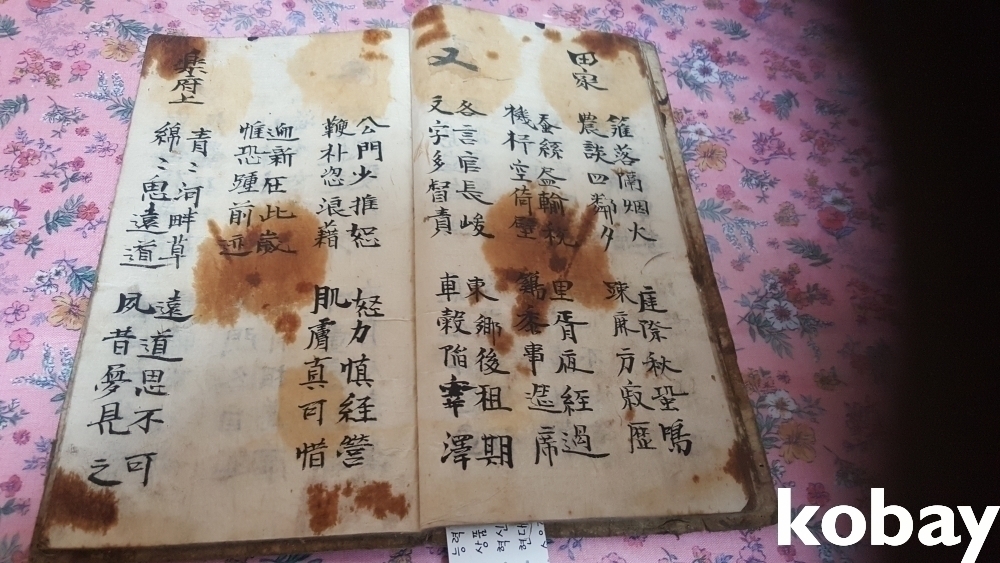 田家
籬落隔烟火
農談四鄰夕
庭際秋蛩鳴
疎麻方寂歷
蚕絲盡輸稅
機杼空倚壁
里胥夜經過
鷄黍事席
又
各言官長峻
文字多督責
東鄉後租期
車轂陷澤
公門少推恕
鞭朴恣浪藉
力慎経營
肌膚真可惜
迎新在此歲
惟恐踵前迹
樂府上
青〻河畔草
綿〻思遠道
遠道思不可
夙昔夢見之
kobay